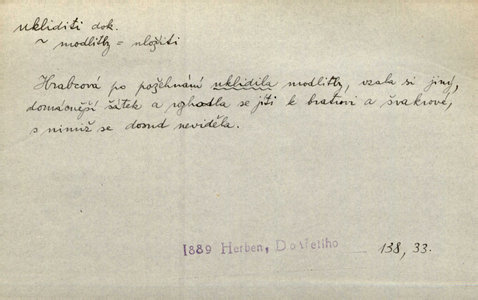 ukliditi dok.
~ modlitby = uložiti
Hrabcová po požehnání uklidila modlitby, vzala si jiný,
domácnější šátek a vyhodla se jíti k bratrovi a švakrové,
s nimiž se dosud neviděla.
1889 Herben, Do třetího 138, 33.